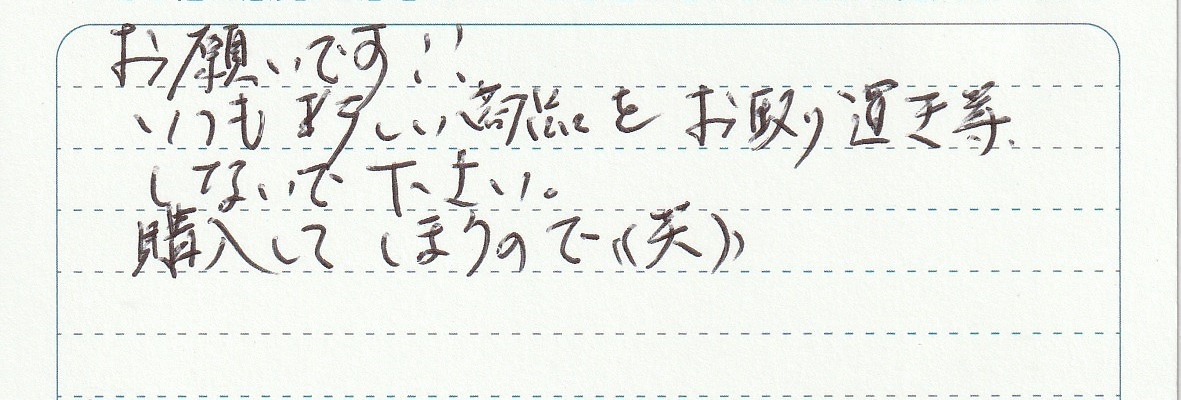 お願いです!!
いつも珍しい商品をお取り選定等、
しないで下さい。
購入してしまうので((笑))